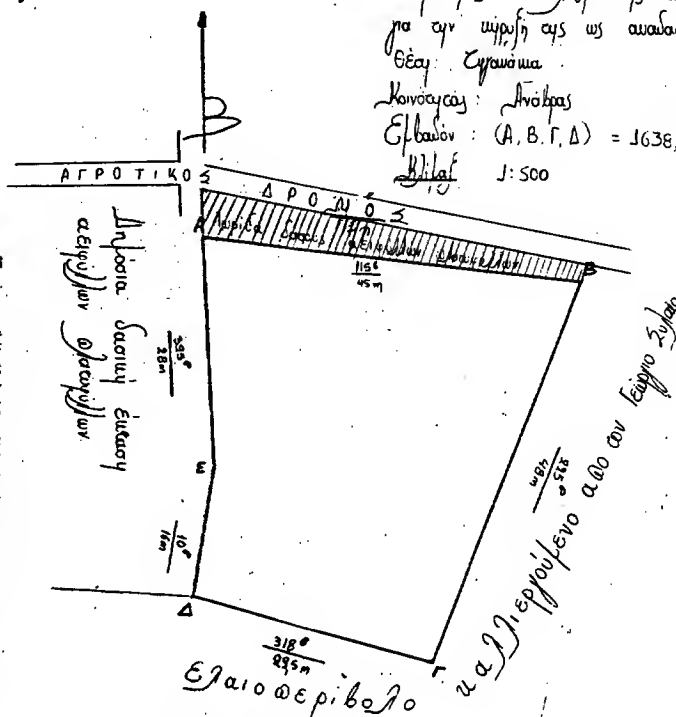 για την κήρυξή της ως αναδα
Θέση: Τζανάκια
Κοινότητας: Ανάβρας
Εμβαδόν: (Α, Β, Γ, Δ) = 1638,
Κλίμαξ 1:500
Β
ΑΓΡΟΤΙΚΟΣ
ΔΡΟΜΟΣ
Α
Λωρίδα δάσους αειφύλλων πλατυφύλλων
Β
115ᵍ
45m
Δημόσια δασική έκταση
αειφύλλων πλατυφύλλων
395ᵍ
28m
Ε
10ᵍ
16m
Δ
225ᵍ
48m
καλλιεργούμενο από τον Γεώργιο
318ᵍ
29,5m
Γ
Ελαιοπερίβολο